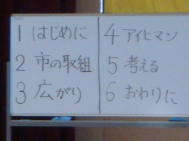 1 はじめに
2 市の取組
3 広がり
4 アイヒマン
5 考える
6 おわりに